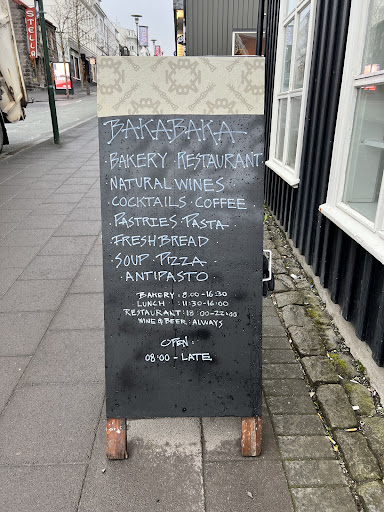 STELLA
BAKABAKA
BAKERY RESTAURANT
NATURAL WINES
COCKTAILS · COFFEE
· PASTRIES · PASTA ·
· FRESH BREAD ·
· SOUP · PIZZA ·
· ANTIPASTO ·
BAKERY : 8:00 - 16:30
LUNCH : 11:30 - 16:00
RESTAURANT : 18:00 - 22:00
WINE & BEER : ALWAYS
OPEN :
08:00 - LATE